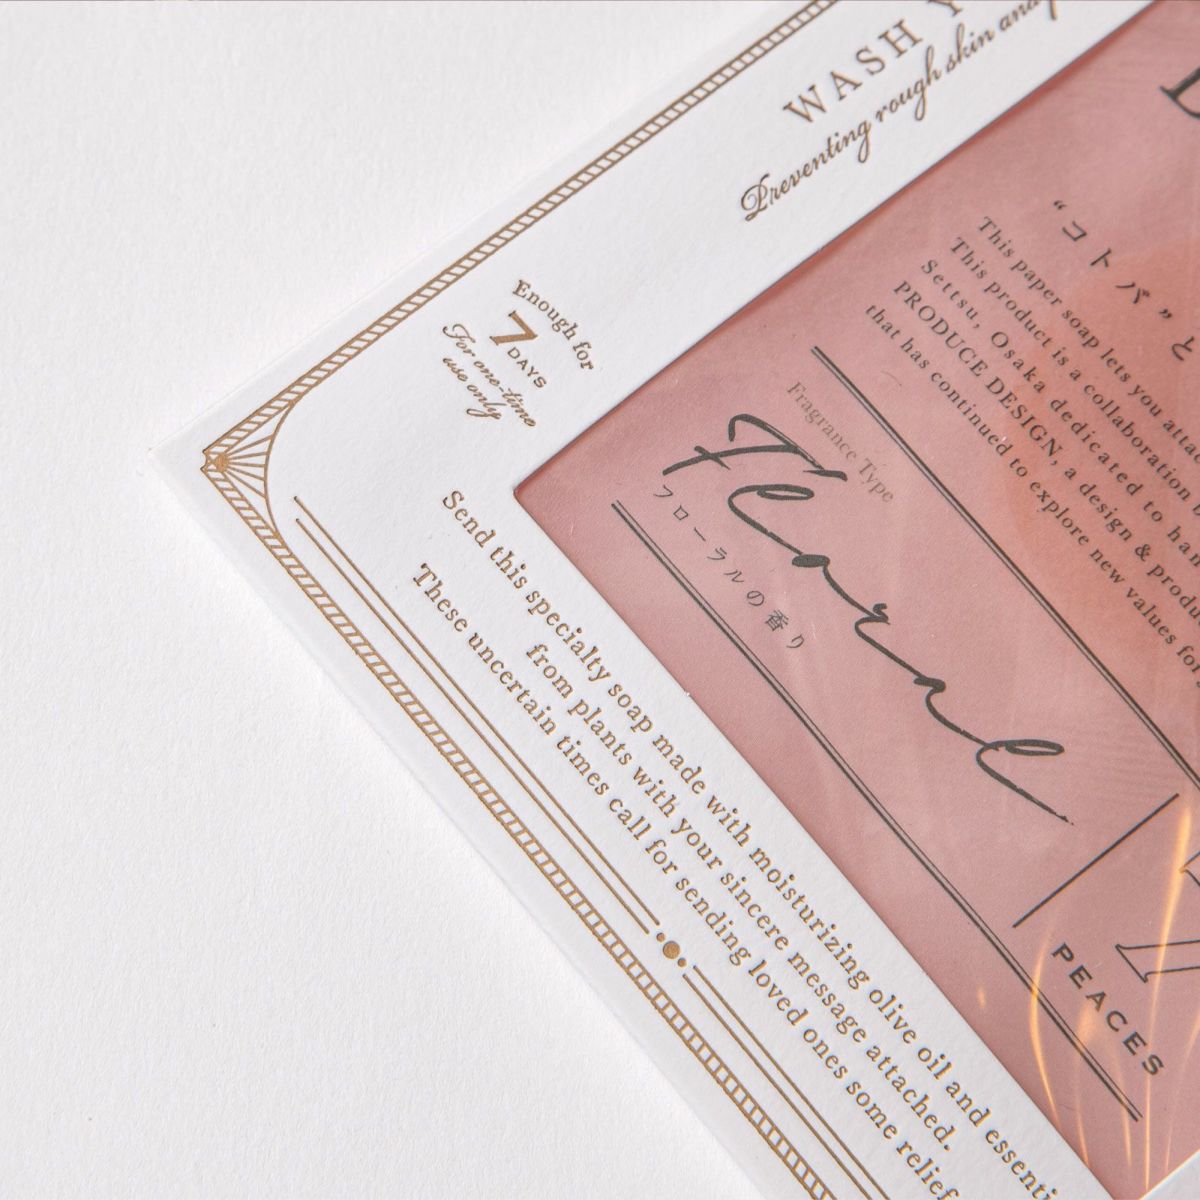 WASH
Preventing rough skin and
Enough for
7
DAYS
For one-time
use only
Send this specialty soap made with moisturizing olive oil and essenti
from plants with your sincere message attached.
These uncertain times call for sending loved ones some relief
“コトバ”と
This paper soap lets you attac
This product is a collaboration b
Settsu, Osaka dedicated to han
PRODUCE DESIGN, a design & produ
that has continued to explore new values for
Fragrance Type
Floral
フローラルの香り
7
PEACES